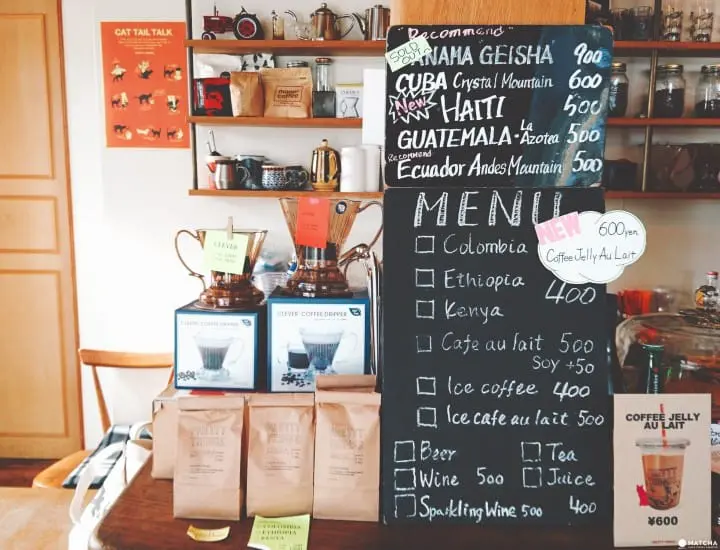 CAT TAIL TALK
Recommend
SOLD OUT
PANAMA GEISHA 900
CUBA Crystal Mountain 600
New
HAITI 500
GUATEMALA - La Azotea 500
Recommend
ECUADOR Andes Mountain 500
MENU
NEW
600yen
Coffee Jelly Au Lait
Colombia
Ethiopia 400
Kenya
Cafe au lait 500
Soy +50
Ice coffee 400
Ice cafe au lait 500
Beer
Tea
Wine 500
Juice
Sparkling Wine 500
400
CLEVER
CLEVER COFFEE DRIPPER
CLEVER COFFEE DRIPPER
COLOMBIA
ETHIOPIA
KENYA
COFFEE JELLY
AU LAIT
¥600
MATCHA